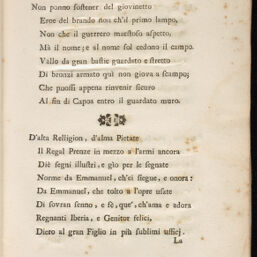 Non ponno sostener del giovinetto
Eroe del brando non ch'il primo lampo,
Non che il guerrero maestoso aspetto,
Mà il nome; e al nome sol cedono il campo.
Vallo da gran bastie guardato e stretto
Di bronzi armato quì non giova a scampo;
Che puossi appena rinvenir sicuro
Al fin di Capoa entro il guardato muro.
D'alta Religion, d'alma Pietate
Il Regal Prenze in mezzo a l'armi ancora
Diè segni illustri, e gìo per le segnate
Norme da Emmanuel, ch'ei siegue, e onora:
Da Emmanuel, che tolto a l'opre usate
Di sovran senno, e fè, que', ch'ama e adora
Regnanti Iberia, e Genitor felici,
Diero al gran Figlio in più sublimi uffici.
La